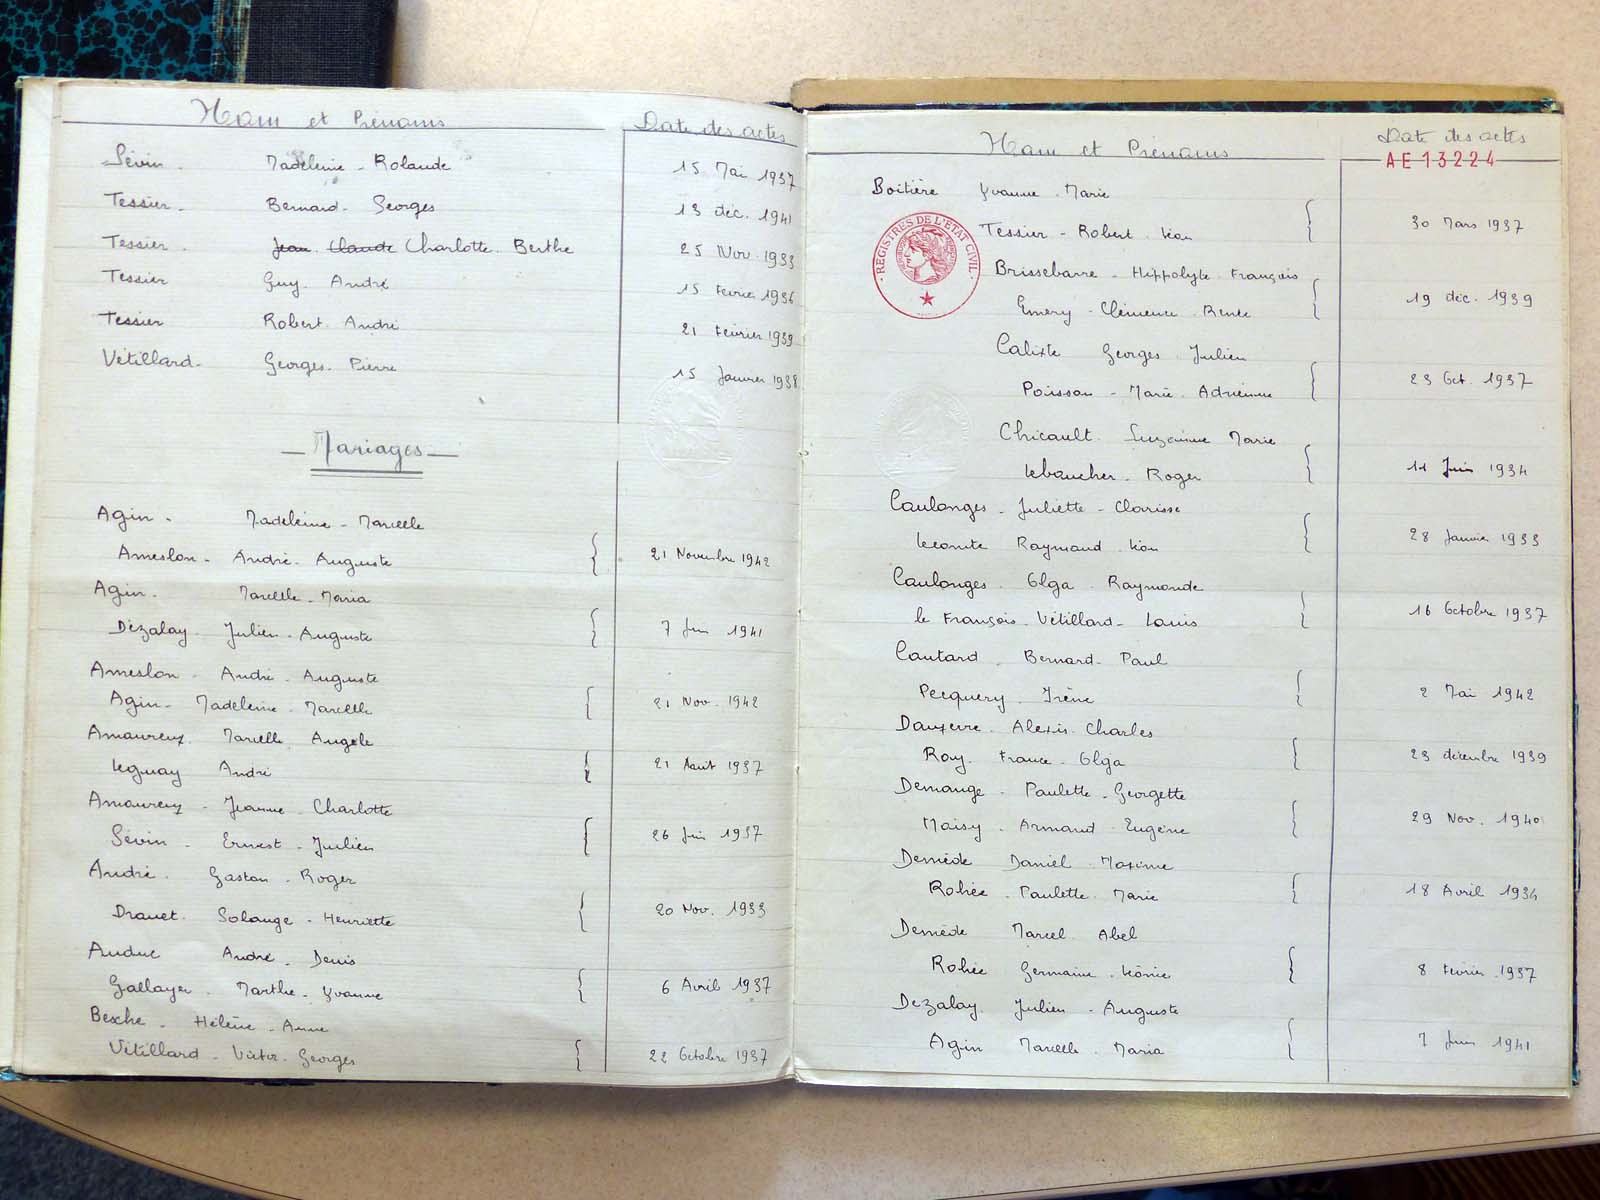 Nom et Prénoms Date des actes
Sévin - Madeleine - Rolande 15 Mai 1937
Tessier - Bernard - Georges 13 déc. 1941
Tessier - Jean Claude Charlotte - Berthe 25 Nov. 1933
Tessier Guy - André 15 Février 1936
Tessier Robert - André 21 Février 1939
Vétillard - Georges - Pierre 15 Janvier 1938
Mariages
Agin - Madeleine - Marcelle
Ameslon - André - Auguste 21 Novembre 1942
Agin - Marcelle - Maria
Dézalay - Julien - Auguste 7 Juin 1941
Ameslon - André - Auguste
Agin - Madeleine - Marcelle 21 Nov. 1942
Amoureux - Marcelle - Angèle
Leguay André 21 Août 1937
Amoureux - Jeanne - Charlotte
Sévin - Ernest - Julien 26 Juin 1937
André - Gaston - Roger
Drouet - Solange - Henriette 20 Nov. 1933
Auduc André - Denis
Gallayer - Marthe - Yvonne 6 Avril 1937
Besche - Hélène - Anne
Vétillard - Victor - Georges 22 Octobre 1937
Nom et Prénoms Date des actes
AE13224
Boitière Yvonne - Marie
Tessier - Robert - Léon 30 Mars 1937
REGISTRES DE L'ETAT CIVIL
Brissebarre - Hippolyte - François
Emery - Clémence - Renée 19 déc. 1939
Calixte Georges - Julien
Poisson - Marie - Adrienne 23 Oct. 1937
Chicault - Suzanne Marie
Leboucher - Roger 11 Juin 1934
Coulonges - Juliette - Clarisse
Lecomte Raymond - Léon 28 Janvier 1933
Coulonges - Olga - Raymonde
le François - Vétillard - Louis 16 Octobre 1937
Coutard - Bernard - Paul
Pecquery - Irène 2 Mai 1942
Dauxerre - Alexis - Charles
Roy - France - Olga 23 décembre 1939
Demange - Paulette - Georgette
Maisy - Armand - Eugène 29 Nov. 1940
Demède Daniel - Maxime
Rohée - Paulette - Marie 18 Avril 1936
Demède Marcel - Abel
Rohée Germaine - Léonie 8 Février 1937
Dezalay - Julien - Auguste
Agin Marcelle - Maria 7 Juin 1941